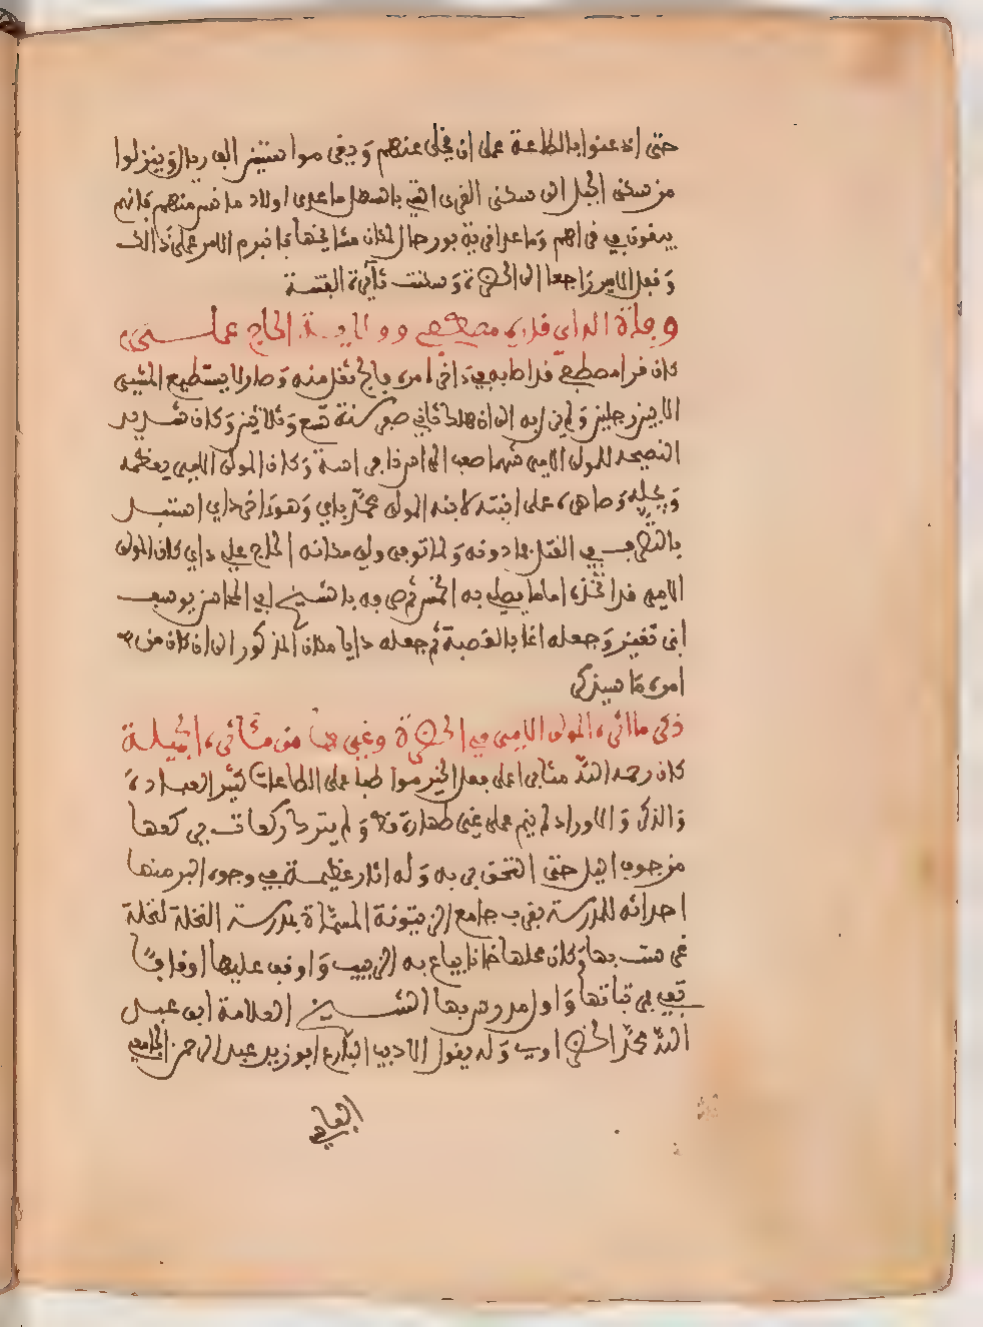 حتى اذعنوا بالطاعة على ان يخلى عنهم ويغرموا ستين الف ريال وينزلوا
من سكنى الجبل الى سكنى القرى التي بالسهل ما عدى اولاد منهم فانهم
يبقون في قراهم وما عدا قرية بورحال لمكان مشايخها فانبرم الامر على ذالك
وقفل الامير راجعا الى الحضرة وسكنت نايرة الفتنة
وفاة الداي قاره مصطفى وولاية الحاج علي
كان قرا مصطفى قد اطابه في اخر امره فالج ثقل منه وصار لا يستطيع المشي
الا بين رجلين ولم يزل به الى ان هلك ثاني صفر سنة تسع وثلاثين وكان شديد
النصيحة للمولى الامير شهما صعب المراس وكان المولى الامير يعظمه
ويجله وصاهره على ابنته لابنه المولى محمد باي وهو اخر داي استبل
بالتصرف في القتل فما دونه ولما توفي ولي مكانه الحاج علي داي كان المولى
الامير قد اتخذه اماما يصلي به الخمس ثم صيره باش شيخ ابي المحاسن يوسف
ابن وجعله اغا بالقصبة ثم جعله دايا مكان المذكور الى ان كان من
امره ما سيذكر
ذكر ما اثر المولى الامير في الحضرة وغيرها من مئاثره الجميلة
كان رحمه الله مثابرا على فعل الخير مواظبا على الطاعات كثير العبادة
والذكر والاوراد لم ينم على غير طهارة قط ولم يترك ركعات يركعها
من جوف اليل حتى التحق بربه وله اثار عظيمة في وجوه البر منها
احداثه للمدرسة بقرب جامع الزيتونة المسماة بمدرسة النخلة لنخلة
غرست بها وكان محلها خانا يباع به الزبيب واوقف عليها اوقافا
تفي بمرتباتها واول مدرس بها الشيخ العلامة ابو عبد
الله محمد الخضراوي وله يقول الاديب البارع ابو زيد عبد الرحمن الجامعي
الفاسي